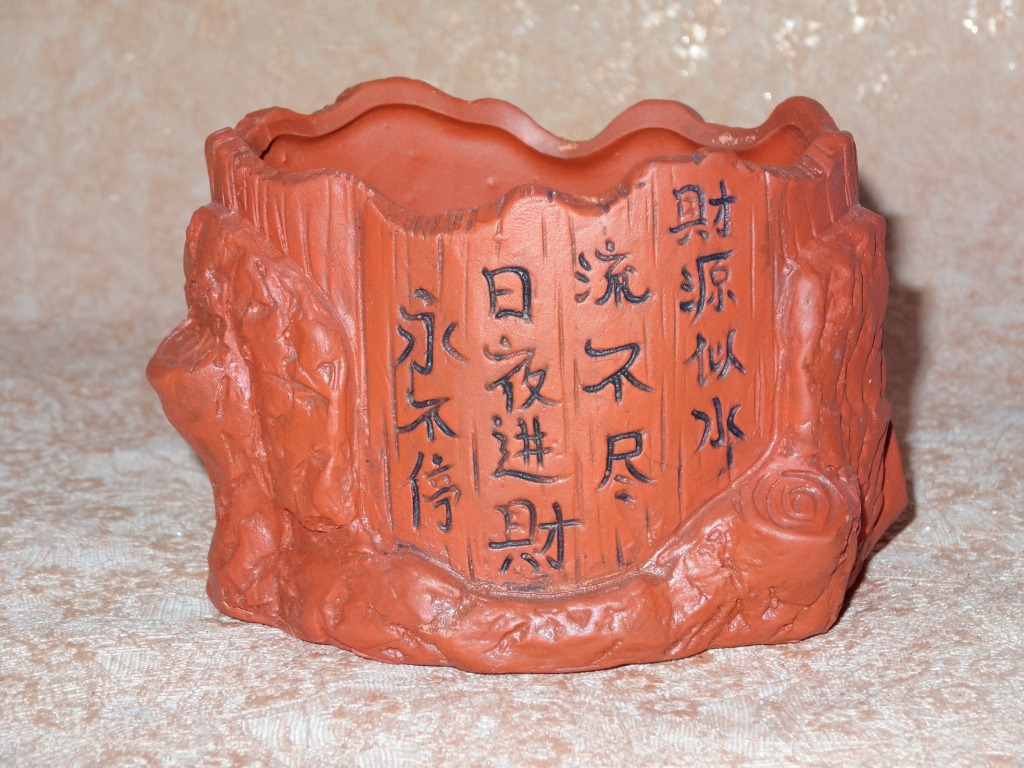 財源似水
流不尽
日夜进財
永不停